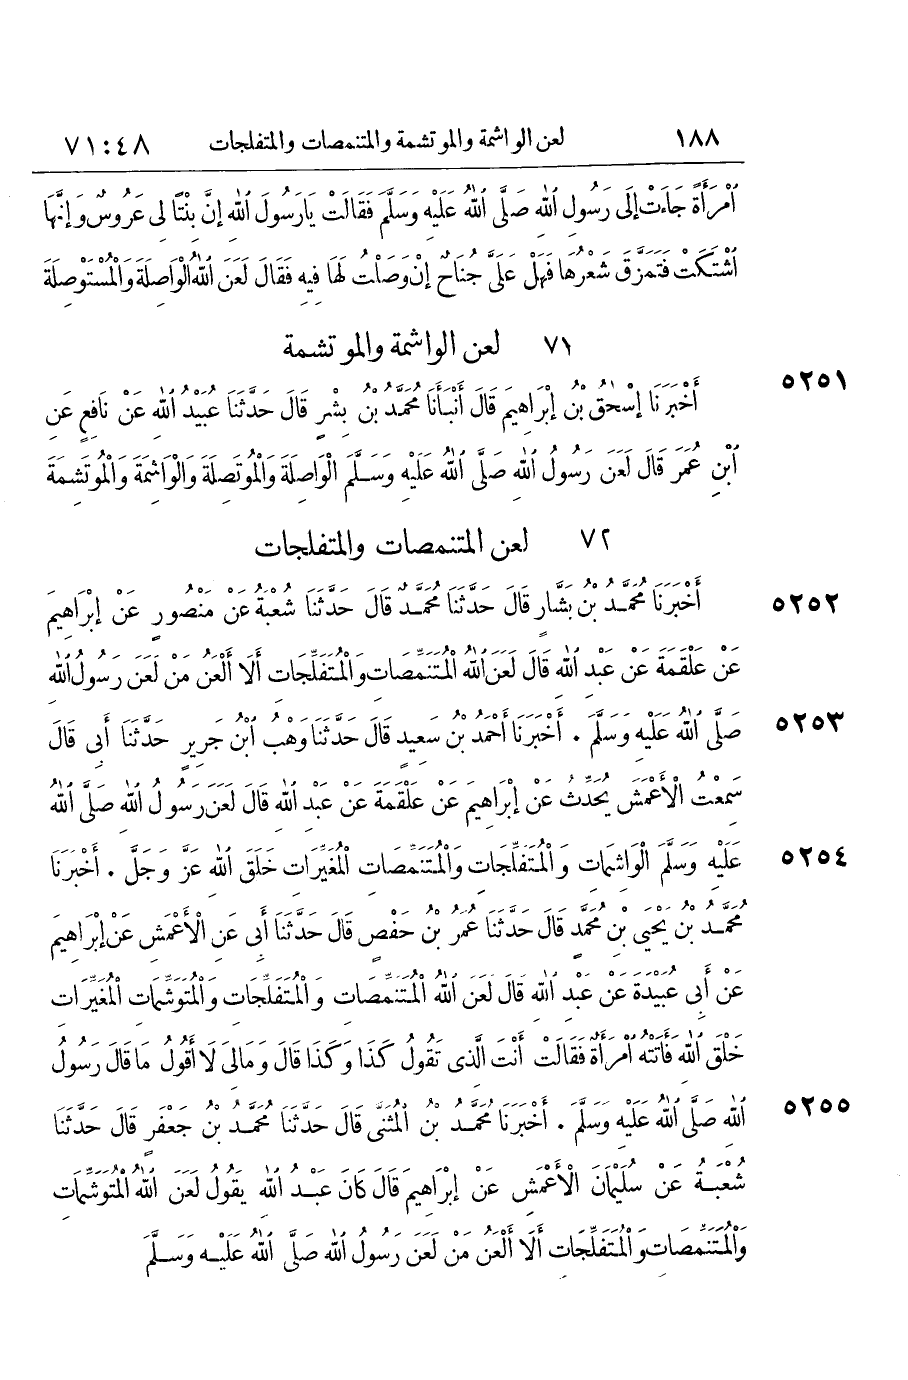 ١٨٨ لعن الواشمة والموتشمة والمتنمصات والمتفلجات ٧١:٤٨
ٱمْرَأَةً جَاءَتْ إِلَى رَسُولِ ٱللهِ صَلَّى ٱللهُ عَلَيْهِ وَسَلَّمَ فَقَالَتْ يَارَسُولَ ٱللهِ إِنَّ بِنْتًا لِى عَرُوسٌ وَإِنَّهَا
ٱشْتَكَتْ فَتَمَزَّقَ شَعْرُهَا فَهَلْ عَلَىَّ جُنَاحٌ إِنْ وَصَلْتُ لَهَا فِيهِ فَقَالَ لَعَنَ ٱللهُ الْوَاصِلَةَ وَالْمُسْتَوْصِلَةَ
٧١ لعن الواشمة والموتشمة
٥٢٥١ أَخْبَرَنَا إِسْحٰقُ بْنُ إِبْرَاهِيمَ قَالَ أَنْبَأَنَا مُحَمَّدُ بْنُ بِشْرٍ قَالَ حَدَّثَنَا عُبَيْدُ ٱللهِ عَنْ نَافِعٍ عَنِ
ٱبْنِ عُمَرَ قَالَ لَعَنَ رَسُولُ ٱللهِ صَلَّى ٱللهُ عَلَيْهِ وَسَلَّمَ الْوَاصِلَةَ وَالْمُوتَصِلَةَ وَالْوَاشِمَةَ وَالْمُوتَشِمَةَ
٧٢ لعن المتنمصات والمتفلجات
٥٢٥٢ أَخْبَرَنَا مُحَمَّدُ بْنُ بَشَّارٍ قَالَ حَدَّثَنَا مُحَمَّدٌ قَالَ حَدَّثَنَا شُعْبَةُ عَنْ مَنْصُورٍ عَنْ إِبْرَاهِيمَ
عَنْ عَلْقَمَةَ عَنْ عَبْدِ ٱللهِ قَالَ لَعَنَ ٱللهُ الْمُتَنَمِّصَاتِ وَالْمُتَفَلِّجَاتِ أَلَا أَلْعَنُ مَنْ لَعَنَ رَسُولُ ٱللهِ
٥٢٥٣ صَلَّى ٱللهُ عَلَيْهِ وَسَلَّمَ . أَخْبَرَنَا أَحْمَدُ بْنُ سَعِيدٍ قَالَ حَدَّثَنَا وَهْبُ ٱبْنُ جَرِيرٍ حَدَّثَنَا أَبِى قَالَ
سَمِعْتُ الْأَعْمَشَ يُحَدِّثُ عَنْ إِبْرَاهِيمَ عَنْ عَلْقَمَةَ عَنْ عَبْدِ ٱللهِ قَالَ لَعَنَ رَسُولُ ٱللهِ صَلَّى ٱللهُ
٥٢٥٤ عَلَيْهِ وَسَلَّمَ الْوَاشِمَاتِ وَالْمُتَفَلِّجَاتِ وَالْمُتَنَمِّصَاتِ الْمُغَيِّرَاتِ خَلْقَ ٱللهِ عَزَّ وَجَلَّ . أَخْبَرَنَا
مُحَمَّدُ بْنُ يَحْيَى بْنِ مُحَمَّدٍ قَالَ حَدَّثَنَا عُمَرُ بْنُ حَفْصٍ قَالَ حَدَّثَنَا أَبِى عَنِ الْأَعْمَشِ عَنْ إِبْرَاهِيمَ
عَنْ أَبِى عُبَيْدَةَ عَنْ عَبْدِ ٱللهِ قَالَ لَعَنَ ٱللهُ الْمُتَنَمِّصَاتِ وَالْمُتَفَلِّجَاتِ وَالْمُتَوَشِّمَاتِ الْمُغَيِّرَاتِ
خَلْقَ ٱللهِ فَأَتَتْهُ ٱمْرَأَةٌ فَقَالَتْ أَنْتَ الَّذِى تَقُولُ كَذَا وَكَذَا قَالَ وَمَالِىَ لَا أَقُولُ مَا قَالَ رَسُولُ
٥٢٥٥ ٱللهِ صَلَّى ٱللهُ عَلَيْهِ وَسَلَّمَ . أَخْبَرَنَا مُحَمَّدُ بْنُ الْمُثَنَّى قَالَ حَدَّثَنَا مُحَمَّدُ بْنُ جَعْفَرٍ قَالَ حَدَّثَنَا
شُعْبَةُ عَنْ سُلَيْمَانَ الْأَعْمَشِ عَنْ إِبْرَاهِيمَ قَالَ كَانَ عَبْدُ ٱللهِ يَقُولُ لَعَنَ ٱللهُ الْمُتَوَشِّمَاتِ
وَالْمُتَنَمِّصَاتِ وَالْمُتَفَلِّجَاتِ أَلَا أَلْعَنُ مَنْ لَعَنَ رَسُولُ ٱللهِ صَلَّى ٱللهُ عَلَيْهِ وَسَلَّمَ